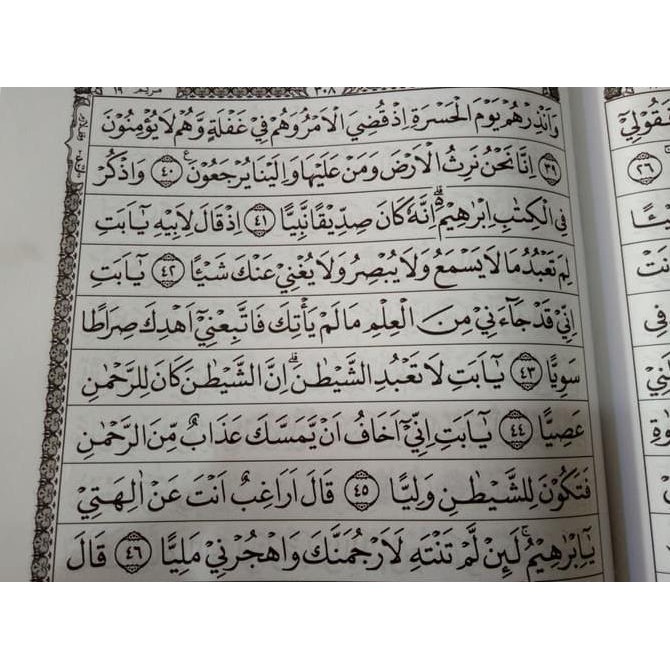 مريم ١٩
٣٠٨
وَاَنْذِرْهُمْ يَوْمَ الْحَسْرَةِ اِذْ قُضِيَ الْاَمْرُ وَهُمْ فِيْ غَفْلَةٍ وَّهُمْ لَا يُؤْمِنُوْنَ
﴿٣٩﴾ اِنَّا نَحْنُ نَرِثُ الْاَرْضَ وَمَنْ عَلَيْهَا وَاِلَيْنَا يُرْجَعُوْنَ ࣖ ﴿٤٠﴾ وَاذْكُرْ
فِى الْكِتٰبِ اِبْرٰهِيْمَ ەۗ اِنَّهٗ كَانَ صِدِّيْقًا نَّبِيًّا ﴿٤١﴾ اِذْ قَالَ لِاَبِيْهِ يٰٓاَبَتِ
لِمَ تَعْبُدُ مَا لَا يَسْمَعُ وَلَا يُبْصِرُ وَلَا يُغْنِيْ عَنْكَ شَيْـًٔا ﴿٤٢﴾ يٰٓاَبَتِ
اِنِّيْ قَدْ جَاۤءَنِيْ مِنَ الْعِلْمِ مَا لَمْ يَأْتِكَ فَاتَّبِعْنِيْٓ اَهْدِكَ صِرَاطًا
سَوِيًّا ﴿٤٣﴾ يٰٓاَبَتِ لَا تَعْبُدِ الشَّيْطٰنَۗ اِنَّ الشَّيْطٰنَ كَانَ لِلرَّحْمٰنِ
عَصِيًّا ﴿٤٤﴾ يٰٓاَبَتِ اِنِّيْٓ اَخَافُ اَنْ يَّمَسَّكَ عَذَابٌ مِّنَ الرَّحْمٰنِ
فَتَكُوْنَ لِلشَّيْطٰنِ وَلِيًّا ﴿٤٥﴾ قَالَ اَرَاغِبٌ اَنْتَ عَنْ اٰلِهَتِيْ
يٰٓاِبْرٰهِيْمُۚ لَىِٕنْ لَّمْ تَنْتَهِ لَاَرْجُمَنَّكَ وَاهْجُرْنِيْ مَلِيًّا ﴿٤٦﴾ قَالَ